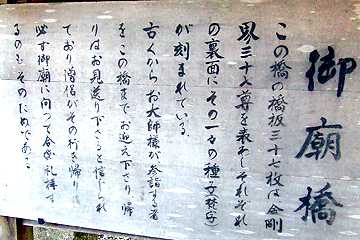 御廟橋
この橋の橋板三十七枚は金剛
界三十七尊を表わしそれぞれ
の裏面にその一々の種子(梵字)
が刻まれている
古くからお大師様が参詣する者
をこの橋までお迎え下さり帰
りはお見送り下さると信じられ
ており僧侶がその行き帰り
必ず御廟に向って合掌礼拝す
るのもそのためである